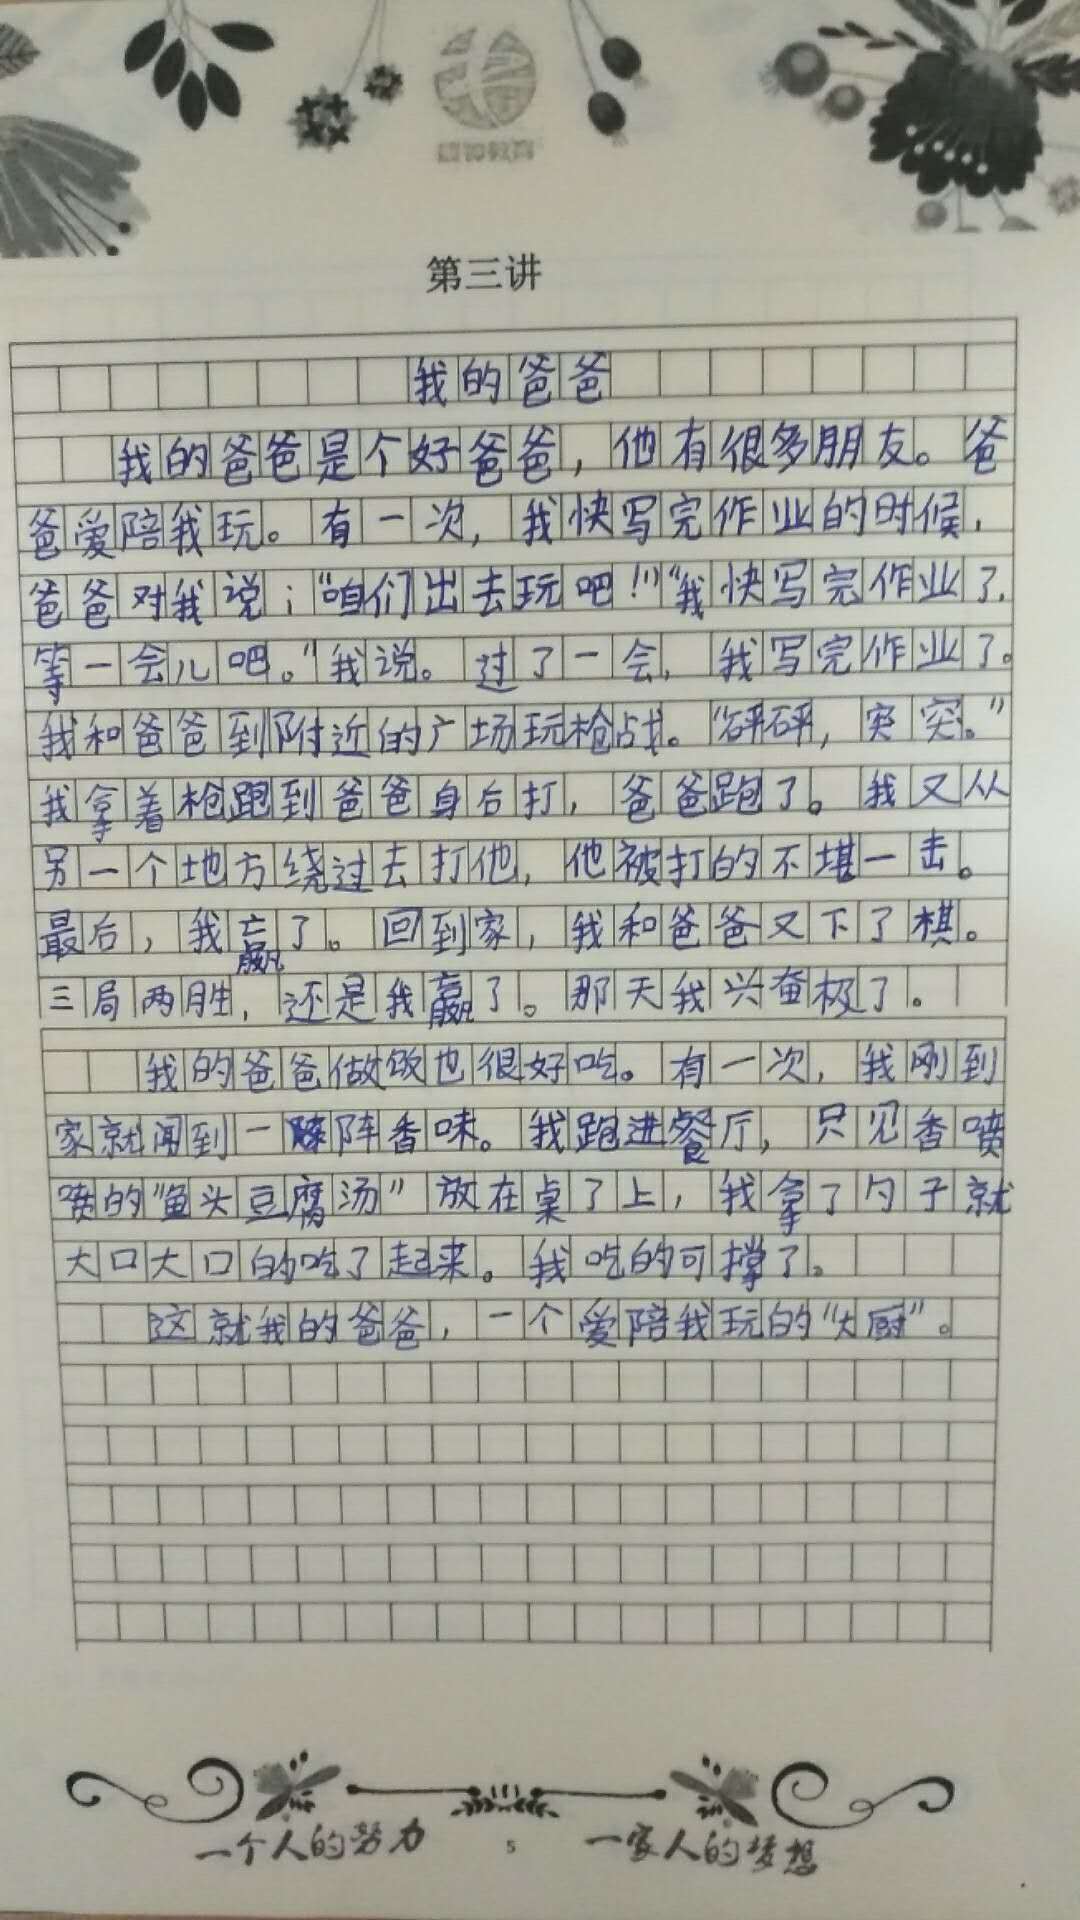 第三讲
我的爸爸
我的爸爸是个好爸爸，他有很多朋友。爸
爸爱陪我玩。有一次，我快写完作业的时候，
爸爸对我说；“咱们出去玩吧！”“我快写完作业了，
等一会儿吧。”我说。过了一会，我写完作业了。
我和爸爸到附近的广场玩枪战。“砰砰，突突。”
我拿着枪跑到爸爸身后打，爸爸跑了。我又从
另一个地方绕过去打他，他被打的不堪一击。
最后，我赢了。回到家，我和爸爸又下了棋。
三局两胜，还是我赢了。那天我兴奋极了。
我的爸爸做饭也很好吃。有一次，我刚到
家就闻到一阵阵香味。我跑进餐厅，只见香喷
喷的“鱼头豆腐汤”放在桌了上，我拿了勺子就
大口大口的吃了起来。我吃的可撑了。
这就我的爸爸，一个爱陪我玩的“大厨”。
一个人的努力 5 一家人的梦想